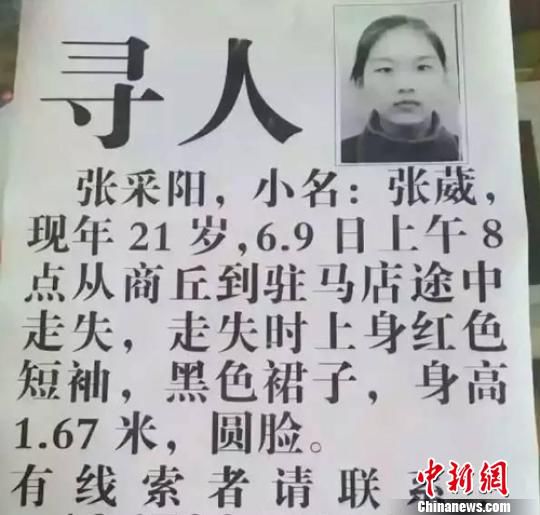 寻人
张采阳，小名：张葳，
现年21岁，6.9日上午8
点从商丘到驻马店途中
走失，走失时上身红色
短袖，黑色裙子，身高
1.67米，圆脸。
有线索者请联系
中新网
Chinanews.com